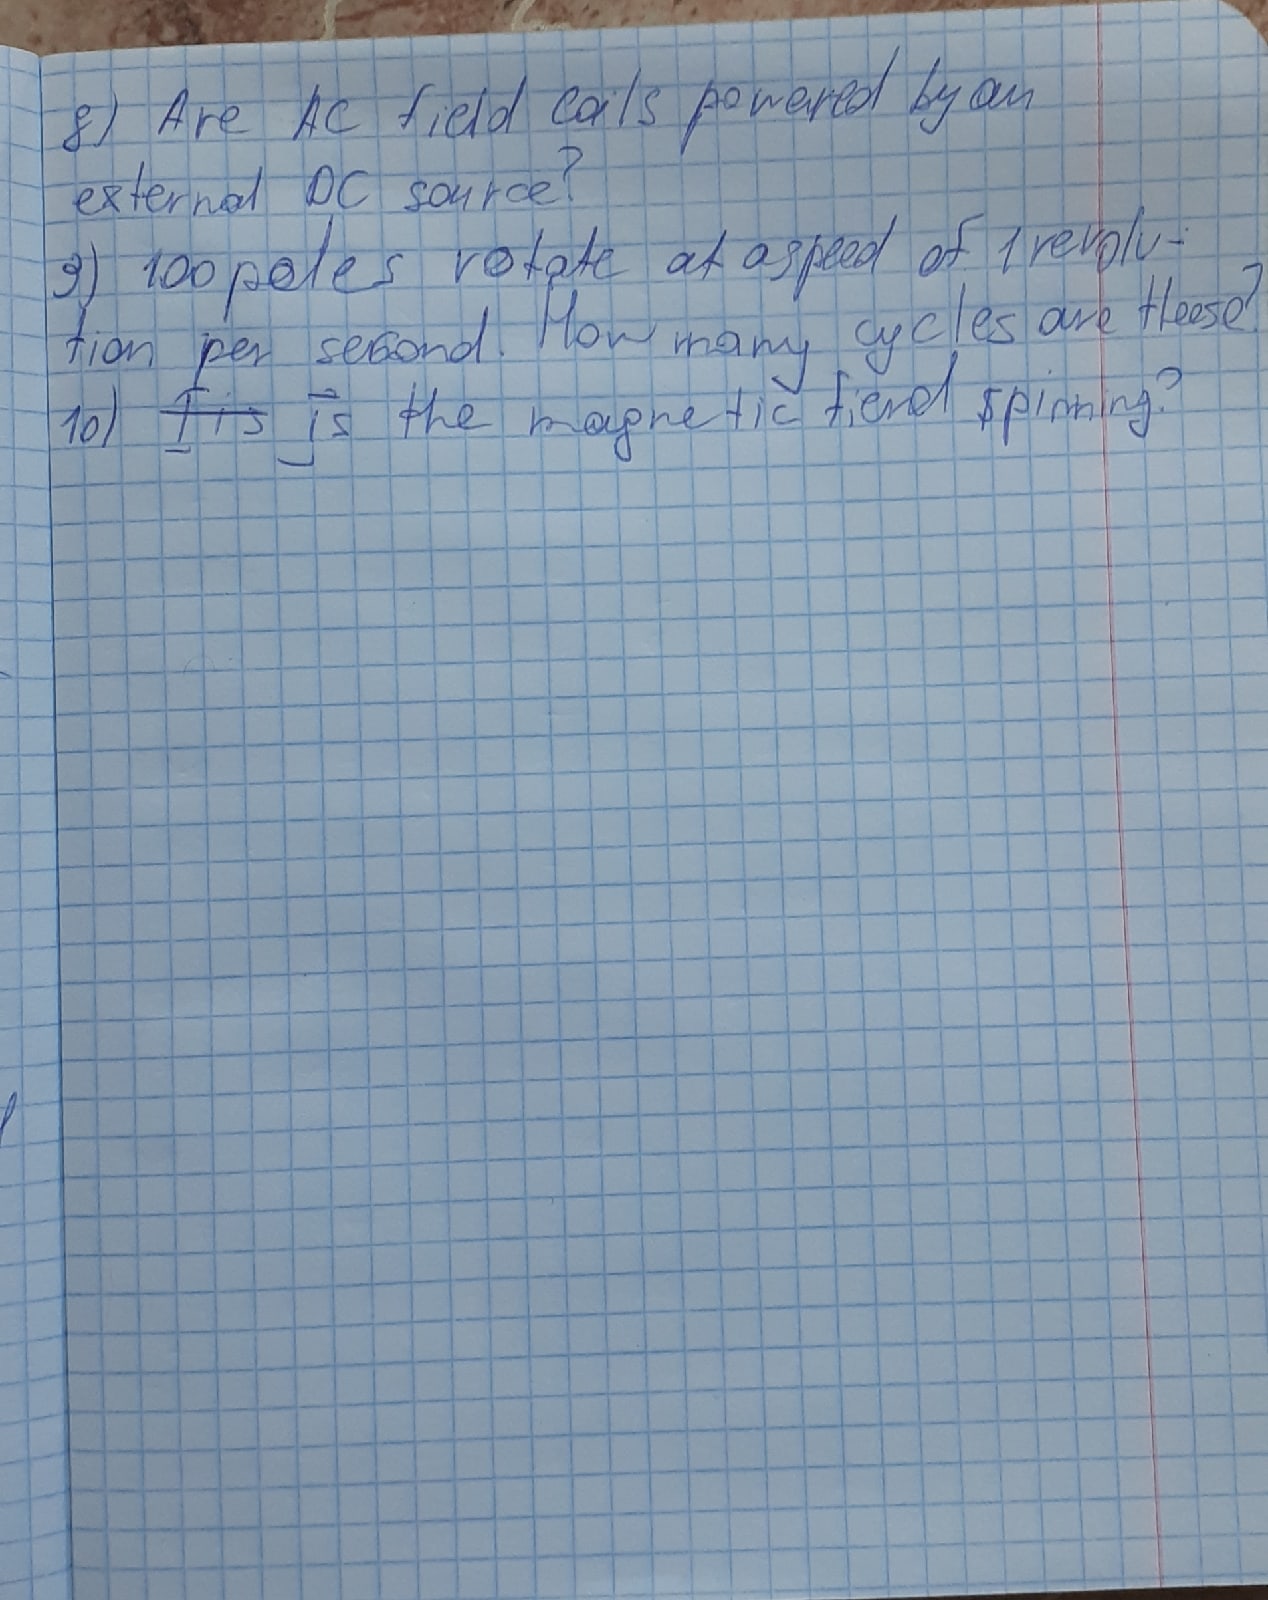 8) Are AC field coils powered by an
external DC source?
9) 100 poles rotate at a speed of 1 revolu-
tion per second. How many cycles are theese?
10) is the magnetic fiend spinning?